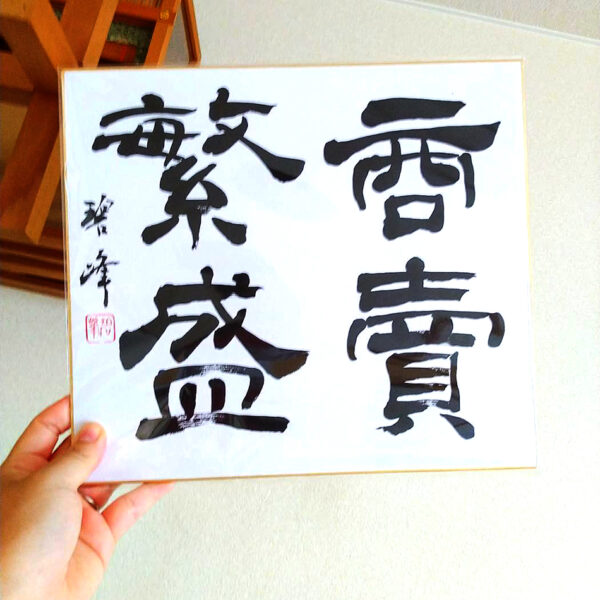 商賣
繁盛
碧峰